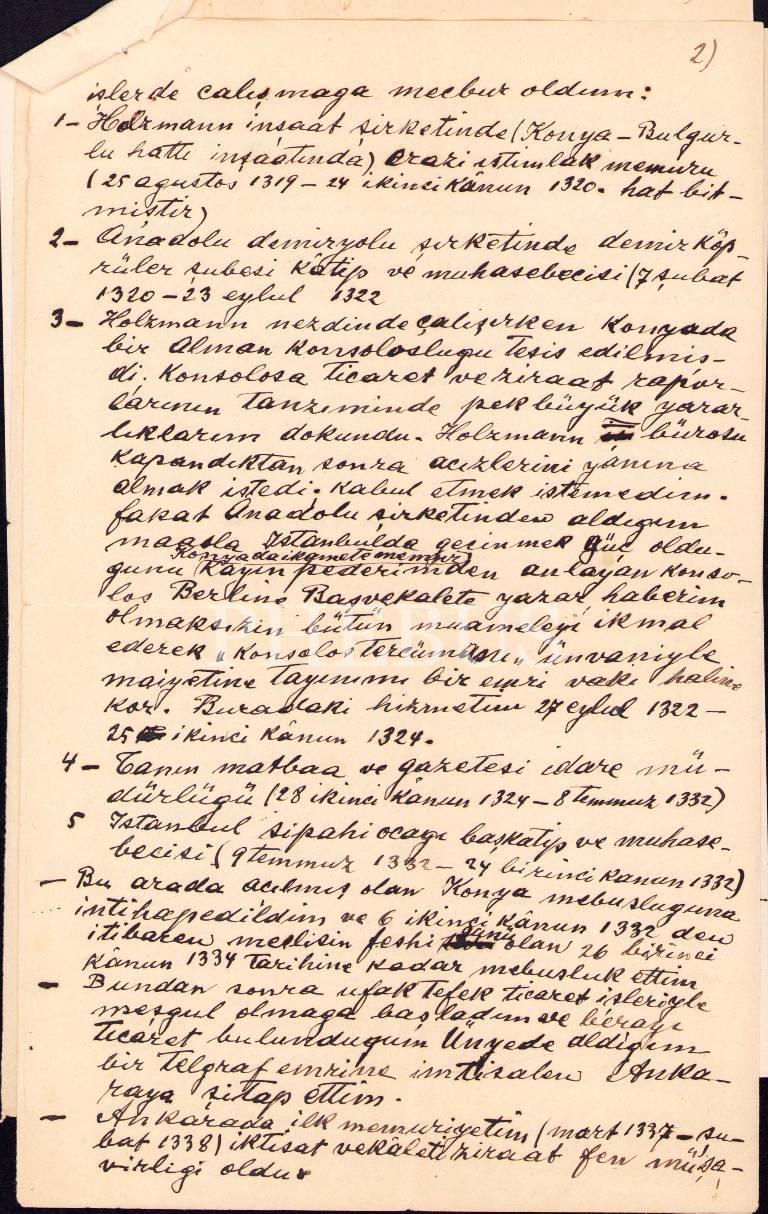 2)
işlerde calışmaga mecbur oldum:
1- Holzmann inşaat şirketinde (Konya - Bulgur-
lu hattı inşaatında) arazi istimlâk memuru
(25 agustos 1319 - 24 ikinci kânun 1320. hat bit-
miştir)
2- Anadolu demiryolu şirketinde demir köp-
rüler şubesi kâtip ve muhasebecisi (7 şubat
1320 - 23 eylul 1322
3- Holzmann nezdinde çalışırken Konyada
bir Alman Konsoloslugu tesis edilmiş-
di. Konsolosa ticaret ve ziraat rapor-
larının tanziminde pek büyük yarar-
lıklarım dokundu. Holzmann bürosu
kapandıktan sonra acizlerini yanına
almak istedi. Kabul etmek istemedim.
fakat Anadolu şirketinden aldıgım
maaşla Istanbulda geçinmek güç oldu-
Konyada ikamete memur
gunu Kayın pederimden anlayan konso-
los Berline Başvekalete yazar, haberim
olmaksızın bütün muameleyi ikmal
ederek "Konsolos tercümanı" ünvaniyle
maiyetine tayinimi bir emri vaki haline
kor. Buradaki hizmetim 27 eylul 1322 -
25 ikinci kânun 1324.
4 - Tanin matbaa ve gazetesi idare mü-
dürlügü (28 ikinci kânun 1324 - 8 temmuz 1332)
5 Istanbul sipahi ocagı başkatip ve muhase-
becisi (9 temmuz 1332 - 24 birinci kanun 1332)
- Bu arada acılmış olan Konya mebusluguna
intihap edildim ve 6 ikinci kânun 1332 den
itibaren meclisin feshi günü olan 26 birinci
kânun 1334 tarihine kadar mebusluk ettim
- Bundan sonra ufak tefek ticaret işleriyle
meşgul olmaga başladım ve berayı
ticaret bulundugum Ünyede aldıgım
bir telgraf emrine imtisalen Anka-
raya şitap ettim.
- Ankarada ilk memuriyetim (mart 1337 - şu-
bat 1338) iktisat vekâleti ziraat fen müşa-
virligi oldu.